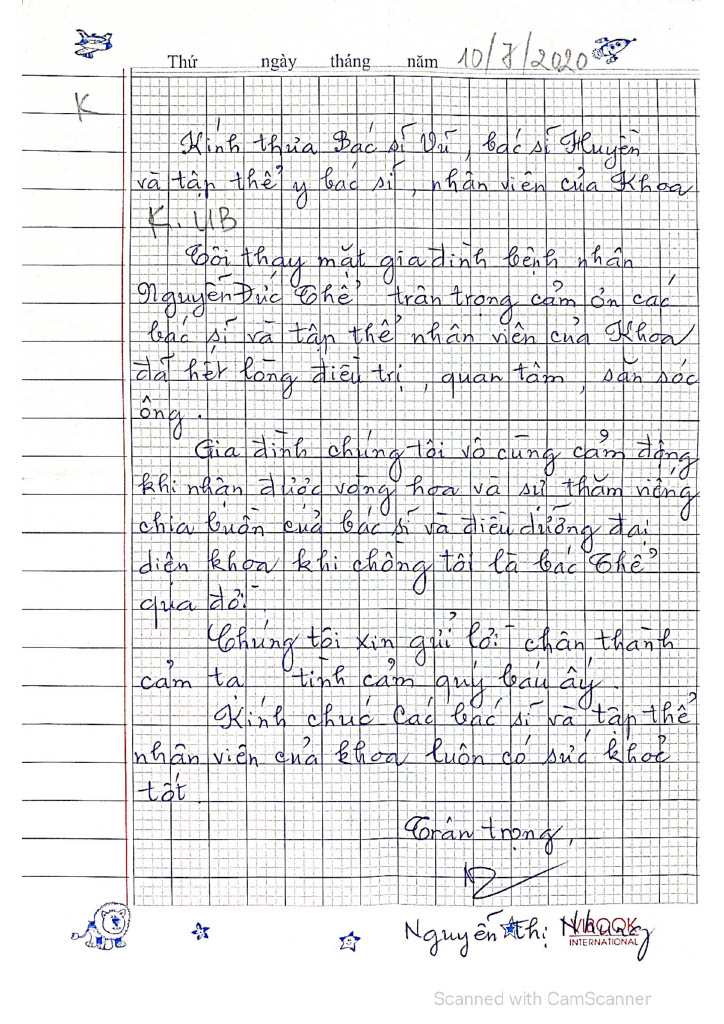 Thứ ngày tháng năm 10/7/2020
K
Kính thưa Bác sĩ Vũ, bác sĩ Huyền
và tập thể y bác sĩ, nhân viên của Khoa
K. UB
Tôi thay mặt gia đình bệnh nhân
Nguyễn Đức Thể trân trọng cảm ơn các
bác sĩ và tập thể nhân viên của Khoa
đã hết lòng điều trị, quan tâm, săn sóc
ông.
Gia đình chúng tôi vô cùng cảm động
khi nhận được vòng hoa và sự thăm viếng
chia buồn của bác sĩ và điều dưỡng đại
diện khoa khi chồng tôi là bác Thể
qua đời.
Chúng tôi xin gửi lời chân thành
cảm tạ tình cảm quý báu ấy.
Kính chúc các bác sĩ và tập thể
nhân viên của khoa luôn có sức khoẻ
tốt.
Trân trọng,
Nguyễn Thị Nhung
VIBOOK
INTERNATIONAL
Scanned with CamScanner